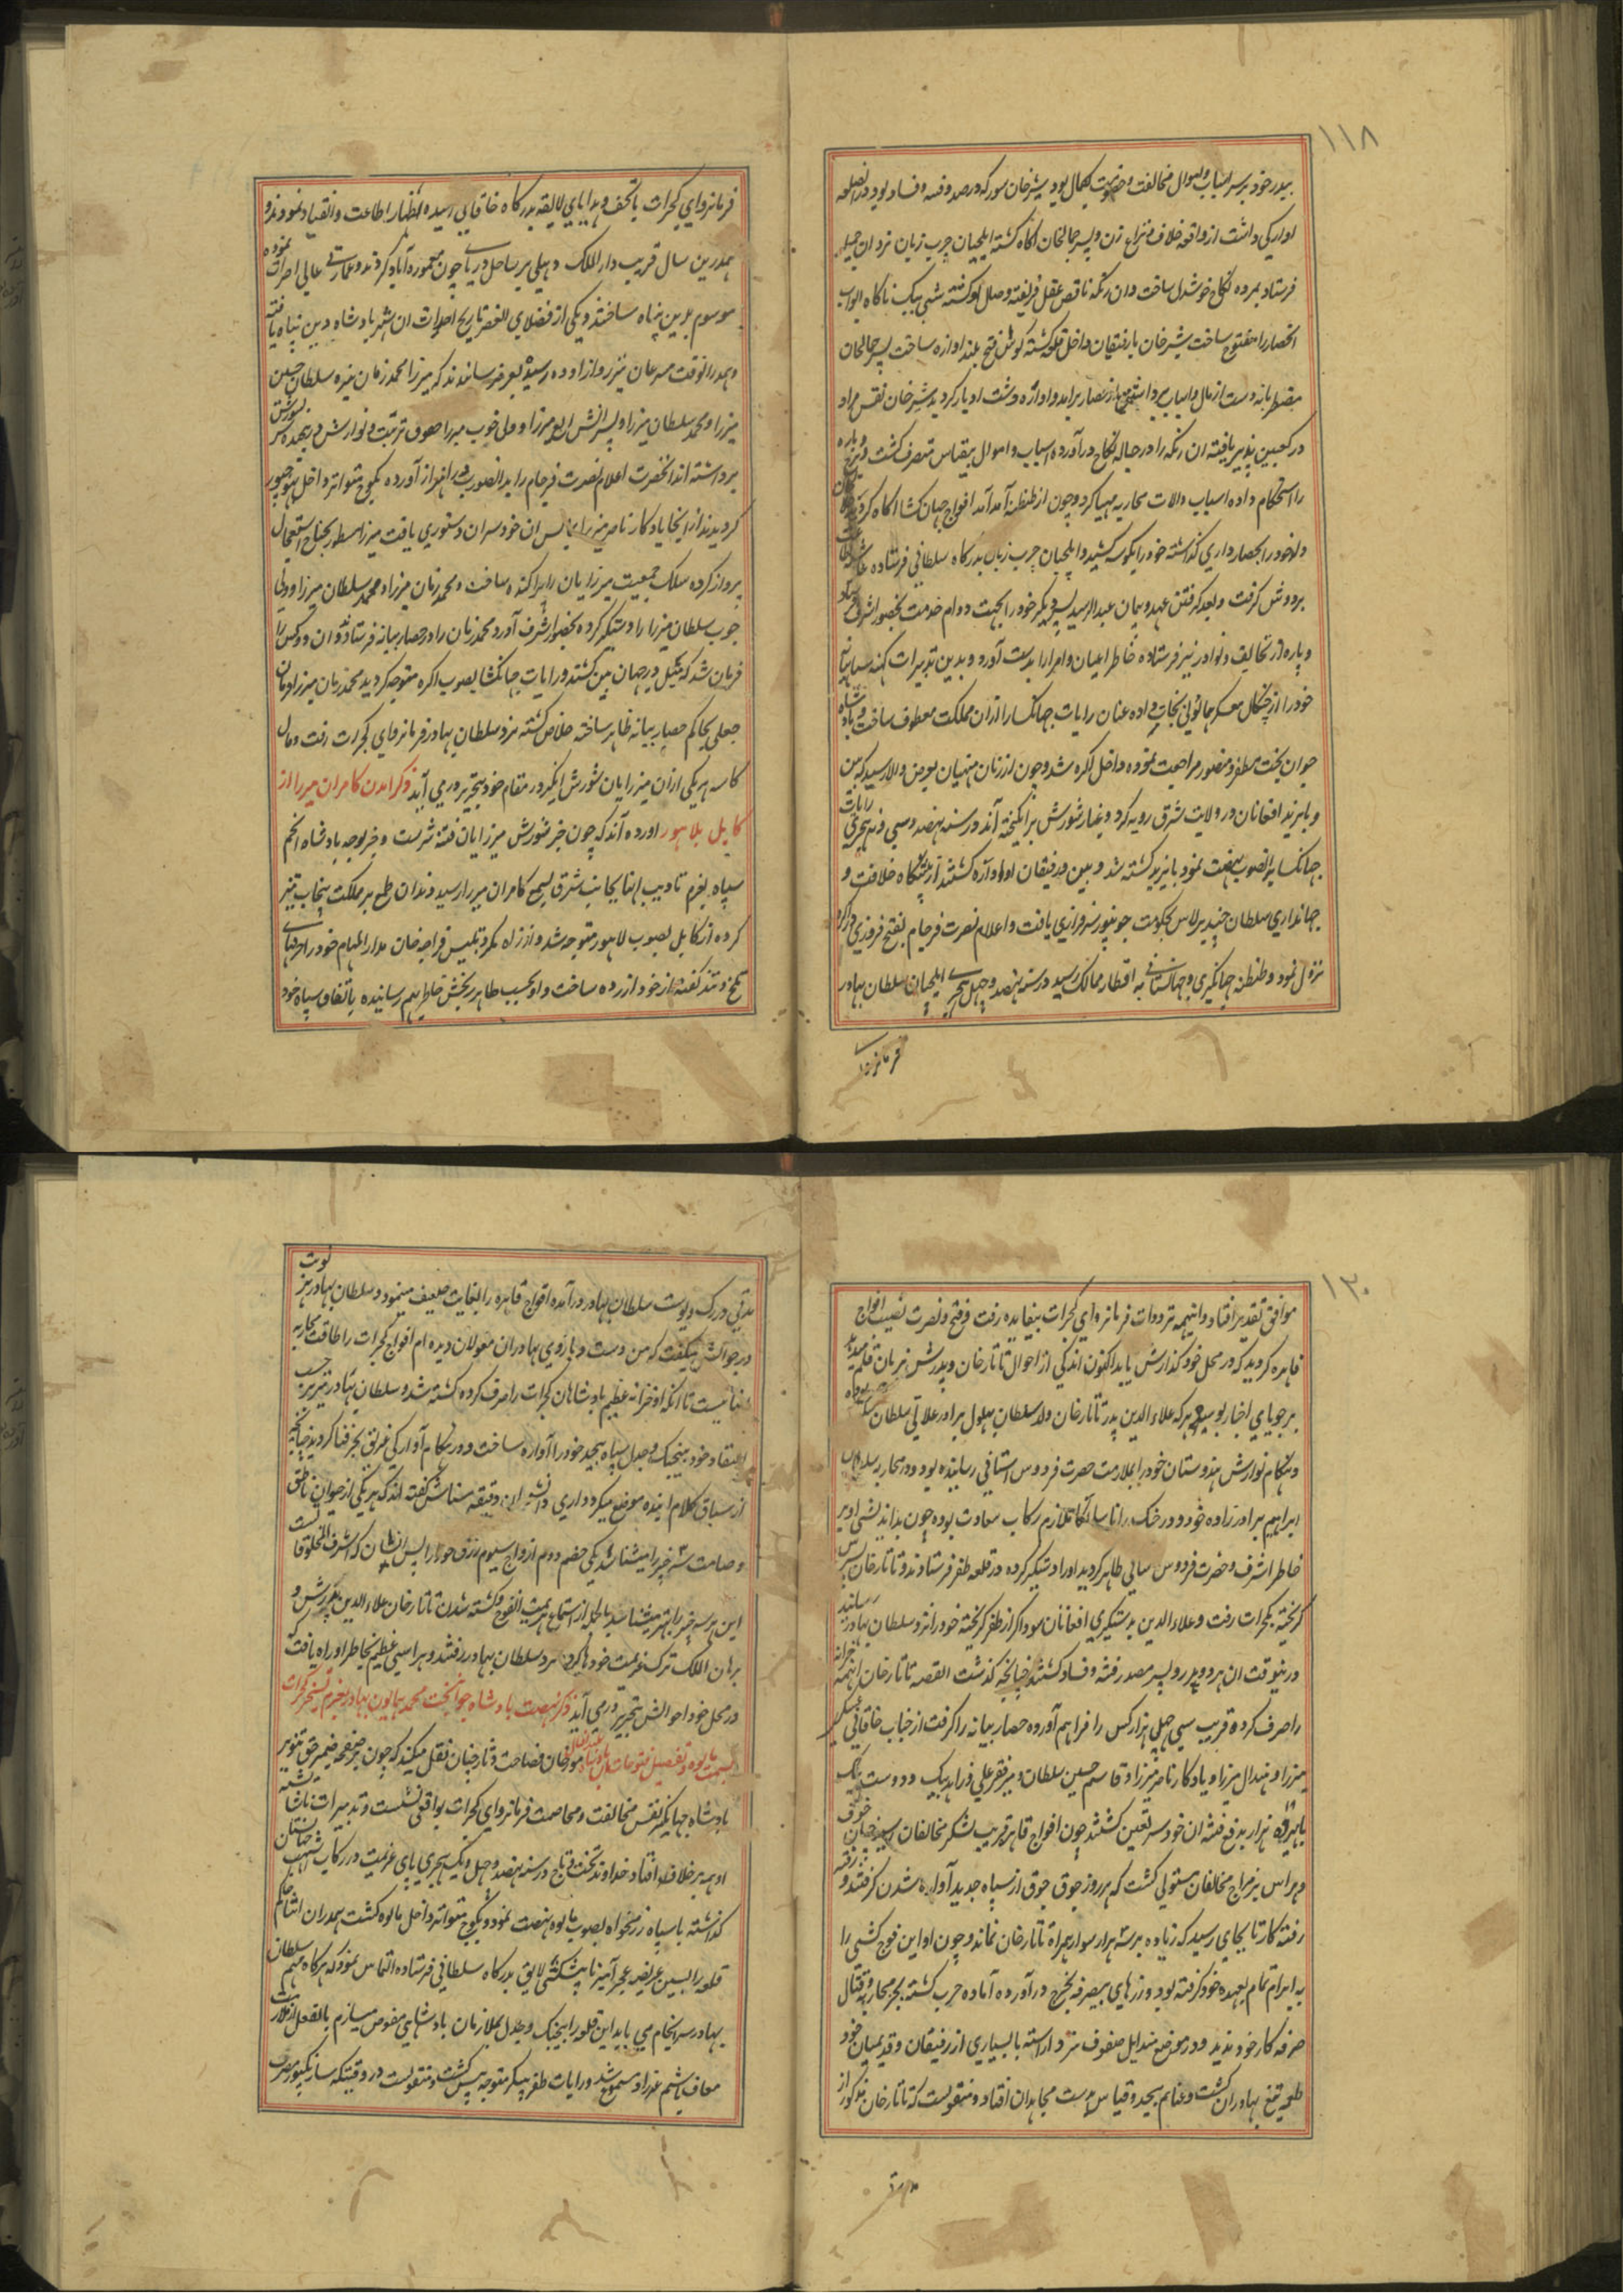 ۱۱۸
بپدر خود بر سر اسباب و اموال مخالفت و خصومت بکمال بود شیر خان سور که در صدد فتنه و فساد بود در آن قلعه
اوارکی داشت از واقعه خلاف و نزاع زن و پسر جمالخان اکاه کشته ایلچیان چرب زبان نزد ان جمیله
فرستاد بمرده نکاح خوشدل ساخت و ان زنکه ناقص عقل فریفته وصل او کشته شبی بیک ناکاه ابواب
انحصار را مفتوح ساخت شیر خان با رفیقان داخل قلعه کشته کوس فتح بلند اوازه ساخت پسر جمالخان
مضطربانه دست از مال و اسباب برداشته از حصار برامد و اواره دشت ادبار کردید شیر خان نقس مراد
در کعبتین پذیر یافته ان زنکه را در حباله نکاح در آورده اسباب و اموال بیقیاس متصرف کشت و برج و باره
را استحکام داده اسباب و الات محاربه مهیا کرد و چون از طنطنه آمد آمد افواج جهان کشا اکاه کردید
ولد خود را بحصار داری کذاشته خود را بیکوشه کشید و ایلچیان چرب زبان بدرکاه سلطانی فرستاده غاشیه اطاعت
بر دوش کرفت و بعد کرفتن عهد و پیمان عبد الرشید پسر دیکر خود را بجهت دوام خدمت بحضور اشرف فرستاد
و پاره از تحایف و نوادر نیز فرستاده خاطر اعیان و امرا را بدست آورد و بدین تدبیرات کهنه سپاهیانه
خود را از چنکال عسکر همایونی نجات داده عنان رایات جهانکشا را ازان مملکت معطوف ساخت و بادشاه
جوان بخت مظفر و منصور مراجعت نموده داخل اکره شد و چون از زبان منهیان بعرض والا رسید که ببن
و بایزید افغانان در ولایت شرق رویه کرد و غبار شورش برانکیخته آند در سنه نهصد و سی و نه هجری رایات
جهانکشا بدانصوب نهضت نمود بایزید کشته شد و ببن و رفیقان او اواره کشتند از پیشکاه خلافت و
جهانداری سلطان جنید برلاس بحکومت جونپور سرفرازی یافت و اعلام نصرت فرجام بفتح فیروزی در اکره
نزول نمود و طنطنه جهانکیری و جهانستانی به اقطار ممالک رسید در سنه نهصد و چهل هجری ایلچیان سلطان بهادر
فرمانروای
فرمانروای کجرات با تحف و هدایای لایقه بدرکاه خاقانی رسیده اظهار اطاعت و انقیاد نمودند و
همدرین سال قریب دار الملک دهلی بر ساحل دریای جون معموره آباد کردند و عمارتی عالی احداث نموده
موسوم بدین پناه ساختند و یکی از فضلای العصر تاریخ احداث ان شهر بادشاه دین پناه یافته
و همدر انوقت مسرعان تیز رو از اوده رسیده بعرض رسانیدند که میرزا محمد زمان نبیره سلطان حسین
میرزا و محمد سلطان میرزا و پسرانش الغ میرزا و ولی خوب میرزا حقوق تربیت و نوازش را نهفته سر بشورش
برداشته اند انحضرت اعلام نصرت فرجام را بد انصوب در اهتزاز آورده بکوچ متواتر داخل بهوجپور
کردیدند از اینجا یادکار ناصر میرزا بمالش ان خودسران دستوری یافت میرزا مسطور بجناح استعجال
پرواز کرده سلک جمعیت میرزایان را پراکنده ساخت و محمد زمان میرزا و محمد سلطان میرزا و ولی
خوب سلطان میرزا را دستکیر کرده بحضور اشرف آورد محمد زمان را در حصار بیانه فرستاد و ان دو کس را
فرمان شد که میل در جهان بین کشند و رایات جهانکشا بصوب اکره متوجه کردید محمد زمان میرزا فرمان
جعلی بحاکم حصار بیانه ظاهر ساخته خلاص کشته نزد سلطان بهادر فرمانروای کجرات رفت و مال
کار سه هر یکی ازان میرزایان شورش انکیز در مقام خود بتحریر در می آید ذکر امدن کامران میرزا از
کابل بلاهور اورده آند که چون خبر شورش میرزایان فتنه سرست و خبر توجه بادشاه انجم
سپاه بعزم تادیب انها بجانب شرق بسمع کامران میرزا رسید دندان طمع بر مملکت پنجاب تیز
کرده از کابل بصوب لاهور متوجه شد و از راه مکر و تلبیس قراجه خان مدار المهام خود را حرفهای
تلخ و تند کفته از خود ازرده ساخت و او بحسب ظاهر رنجش خاطر بهم رسانیده باتفاق سپاه خود
۱۲۰
موافق تقدیر افتاد و اینهمه ترددات فرمانروای کجرات بیفایده رفت و فتح و نصرت نصیب افواج
قاهره کردید که در محل خود کذارش یابد اکنون اندکی از احوال تاتار خان و پدرش بزبان قلم میدهد
بر جویای اخبار پوشیده نماند که علاء الدین پدر تاتار خان ولد سلطان بهلول برادر علاتی سلطان سکندر بوده
و هنکام نوارش هندوستان خود را بملازمت حضرت فردوس اشیانی رسانیده بود و در محاربه سلطان
ابراهیم برادر زاده خود و در جنک رانا سانکا ملازم رکاب سعادت بوده چون بد اندیشی او بر
خاطر اشرف حضرت فردوس مکانی ظاهر کردید اورا دستکیر کرده در قلعه ظفر فرستادند و تاتار خان پسرش
کریخته بکجرات رفت و علاء الدین بدستکیری افغانان سوداکر از ظفر کریخته خود را نزد سلطان بهادر رسانید
درینوقت ان هر دو پدر و پسر مصدر فتنه و فساد کشتند چنانچه کذشت القصه تاتار خان اینهمه خزانه
را صرف کرده قریب سی چهل هزار کس را فراهم آورده حصار بیانه را کرفت از جناب خاقانی عسکر
میرزا و هندال میرزا و یادکار ناصر میرزا و قاسم حسین سلطان و میر فقر علی و زاهد بیک و دوست بیک
با هیژده هزار بدفع فتنه ان خودسر تعین کشتند چون افواج قاهره قریب لشکر مخالفان رسید چنان خوف
و هراس بر مزاج مخالفان مستولی کشت که هر روز جوق جوق از سپاه جدید آواره شدن کرفتند و رفته
رفته کار تا بجای رسید که زیاده بر سه هزار سوار همراه تاتار خان نماند و چون او این فوج کشی را
به ابرام تمام بعهده خود کرفته بود و زرهای بیصرفه بخرج در آورده آماده حرب کشته بجز محاربه و قتال
صرفه کار خود ندید و در موضع مندایل صفوف نبرد اراسته با بسیاری از رفیقان و قدیمیان خود
طعمه تیغ بهادران کشت و غنایم بیحد و قیاس بدست مجاهدان افتاد و منقولست که تاتار خان مذکور از
مدتی
مدتی در رک و پوست سلطان بهادر در آمده افواج قاهره را بغایت ضعیف مینمود و سلطان بهادر هر نوبت
در جوابش میکفت که من دست و بازوی بهادران مغولان دیده ام افواج کجرات را طاقت محاربه
انها نیست تا انکه او خزانه عظیم بادشاهان کجرات را صرف کرده کشته شد و سلطان بهادر نیز بر حسب
اعتقاد خود بیجنک و جدل سپاه بیحد خود را آواره ساخت و در هنکام آوارکی غریق بحر فنا کردید چنانچه
از سیاق کلام اینده موضع میکردد اری دانشوران دقیقه شناس کفته اند که هر یکی از حیوان ناطق
و صامت سه خبر را میشناسد یکی خصم دوم ازدواج سیوم رزق خود را پس انسان که اشرف المخلوقات است
این هر سه خبر را بهتر میشناسد بالجمله از استماع هزیمت افواج و کشته شدن تاتار خان علاء الدین پدرش و
برهان الملک ترک عزیمت خودها کرده نزد سلطان بهادر رفتند و هراسی عظیم بخاطر او راه یافت که
در محل خود احوالش بتحریر در می آید ذکر نهضت بادشاه جوانبخت محمد همایون بهادر بعزم تسخیر کجرات
بسمت مالوه و تفصیل فتوحات آن بادشاه مورخان فصاحت دثار چنان نقل میکنند که چون بر صفحه ضمیر حق تنویر
بادشاه جهانکیر نقش مخالفت و مخاصمت فرمانروای کجرات بواقعی نشست و تدبیرات ناشایسته
او همه برخلاف افتاد خداوند تخت و تاج در سنه نهصد و چهل و یک هجری پای عزیمت در رکاب جهانستان
کذاشته با سپاه رزمخواه بصوب مالوه نهضت نمود و بکوچ متواتر داخل مالوه کشت همدران اثنا حاکم
قلعه رایسین عرایضه عجز آمیز با پیشکشی لایق بدرکاه سلطانی فرستاده التماس نمود که هرکاه مهم سلطان
بهادر سرانجام می یابد این قلعه را بیجنک و جدل بملازمان بادشاهی مفوض میسازم بالفعل از ملازمت
معاف باشم عذر او مسموع شد و رایات ظفر پیکر متوجه پیش کشت و منقولست در وقتیکه سارنکپور مضرب